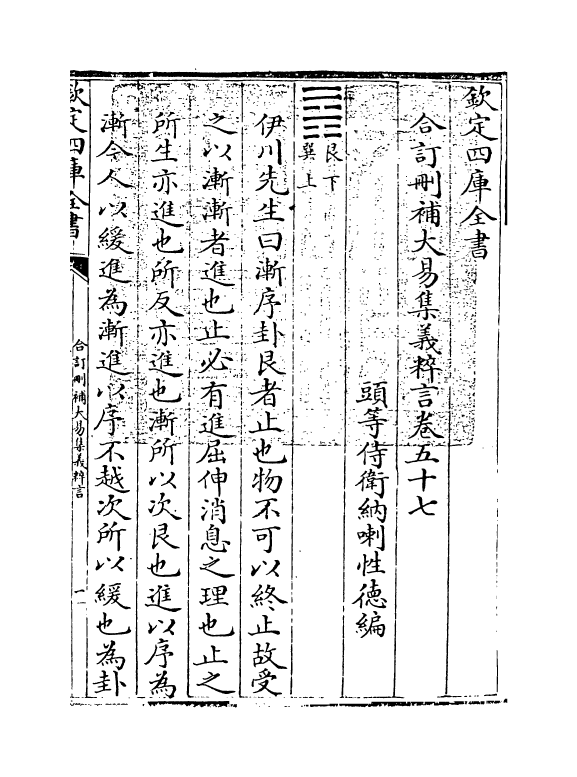 欽定四庫全書
合訂刪補大易集義粹言卷五十七
頭等侍衛納喇性德編
艮下
巽上
伊川先生曰漸序卦艮者止也物不可以終止故受
之以漸漸者進也止必有進屈伸消息之理也止之
所生亦進也所反亦進也漸所以次艮也進以序為
漸今人以緩進為漸進以序不越次所以緩也為卦
欽定四庫全書
合訂刪補大易集義粹言
一